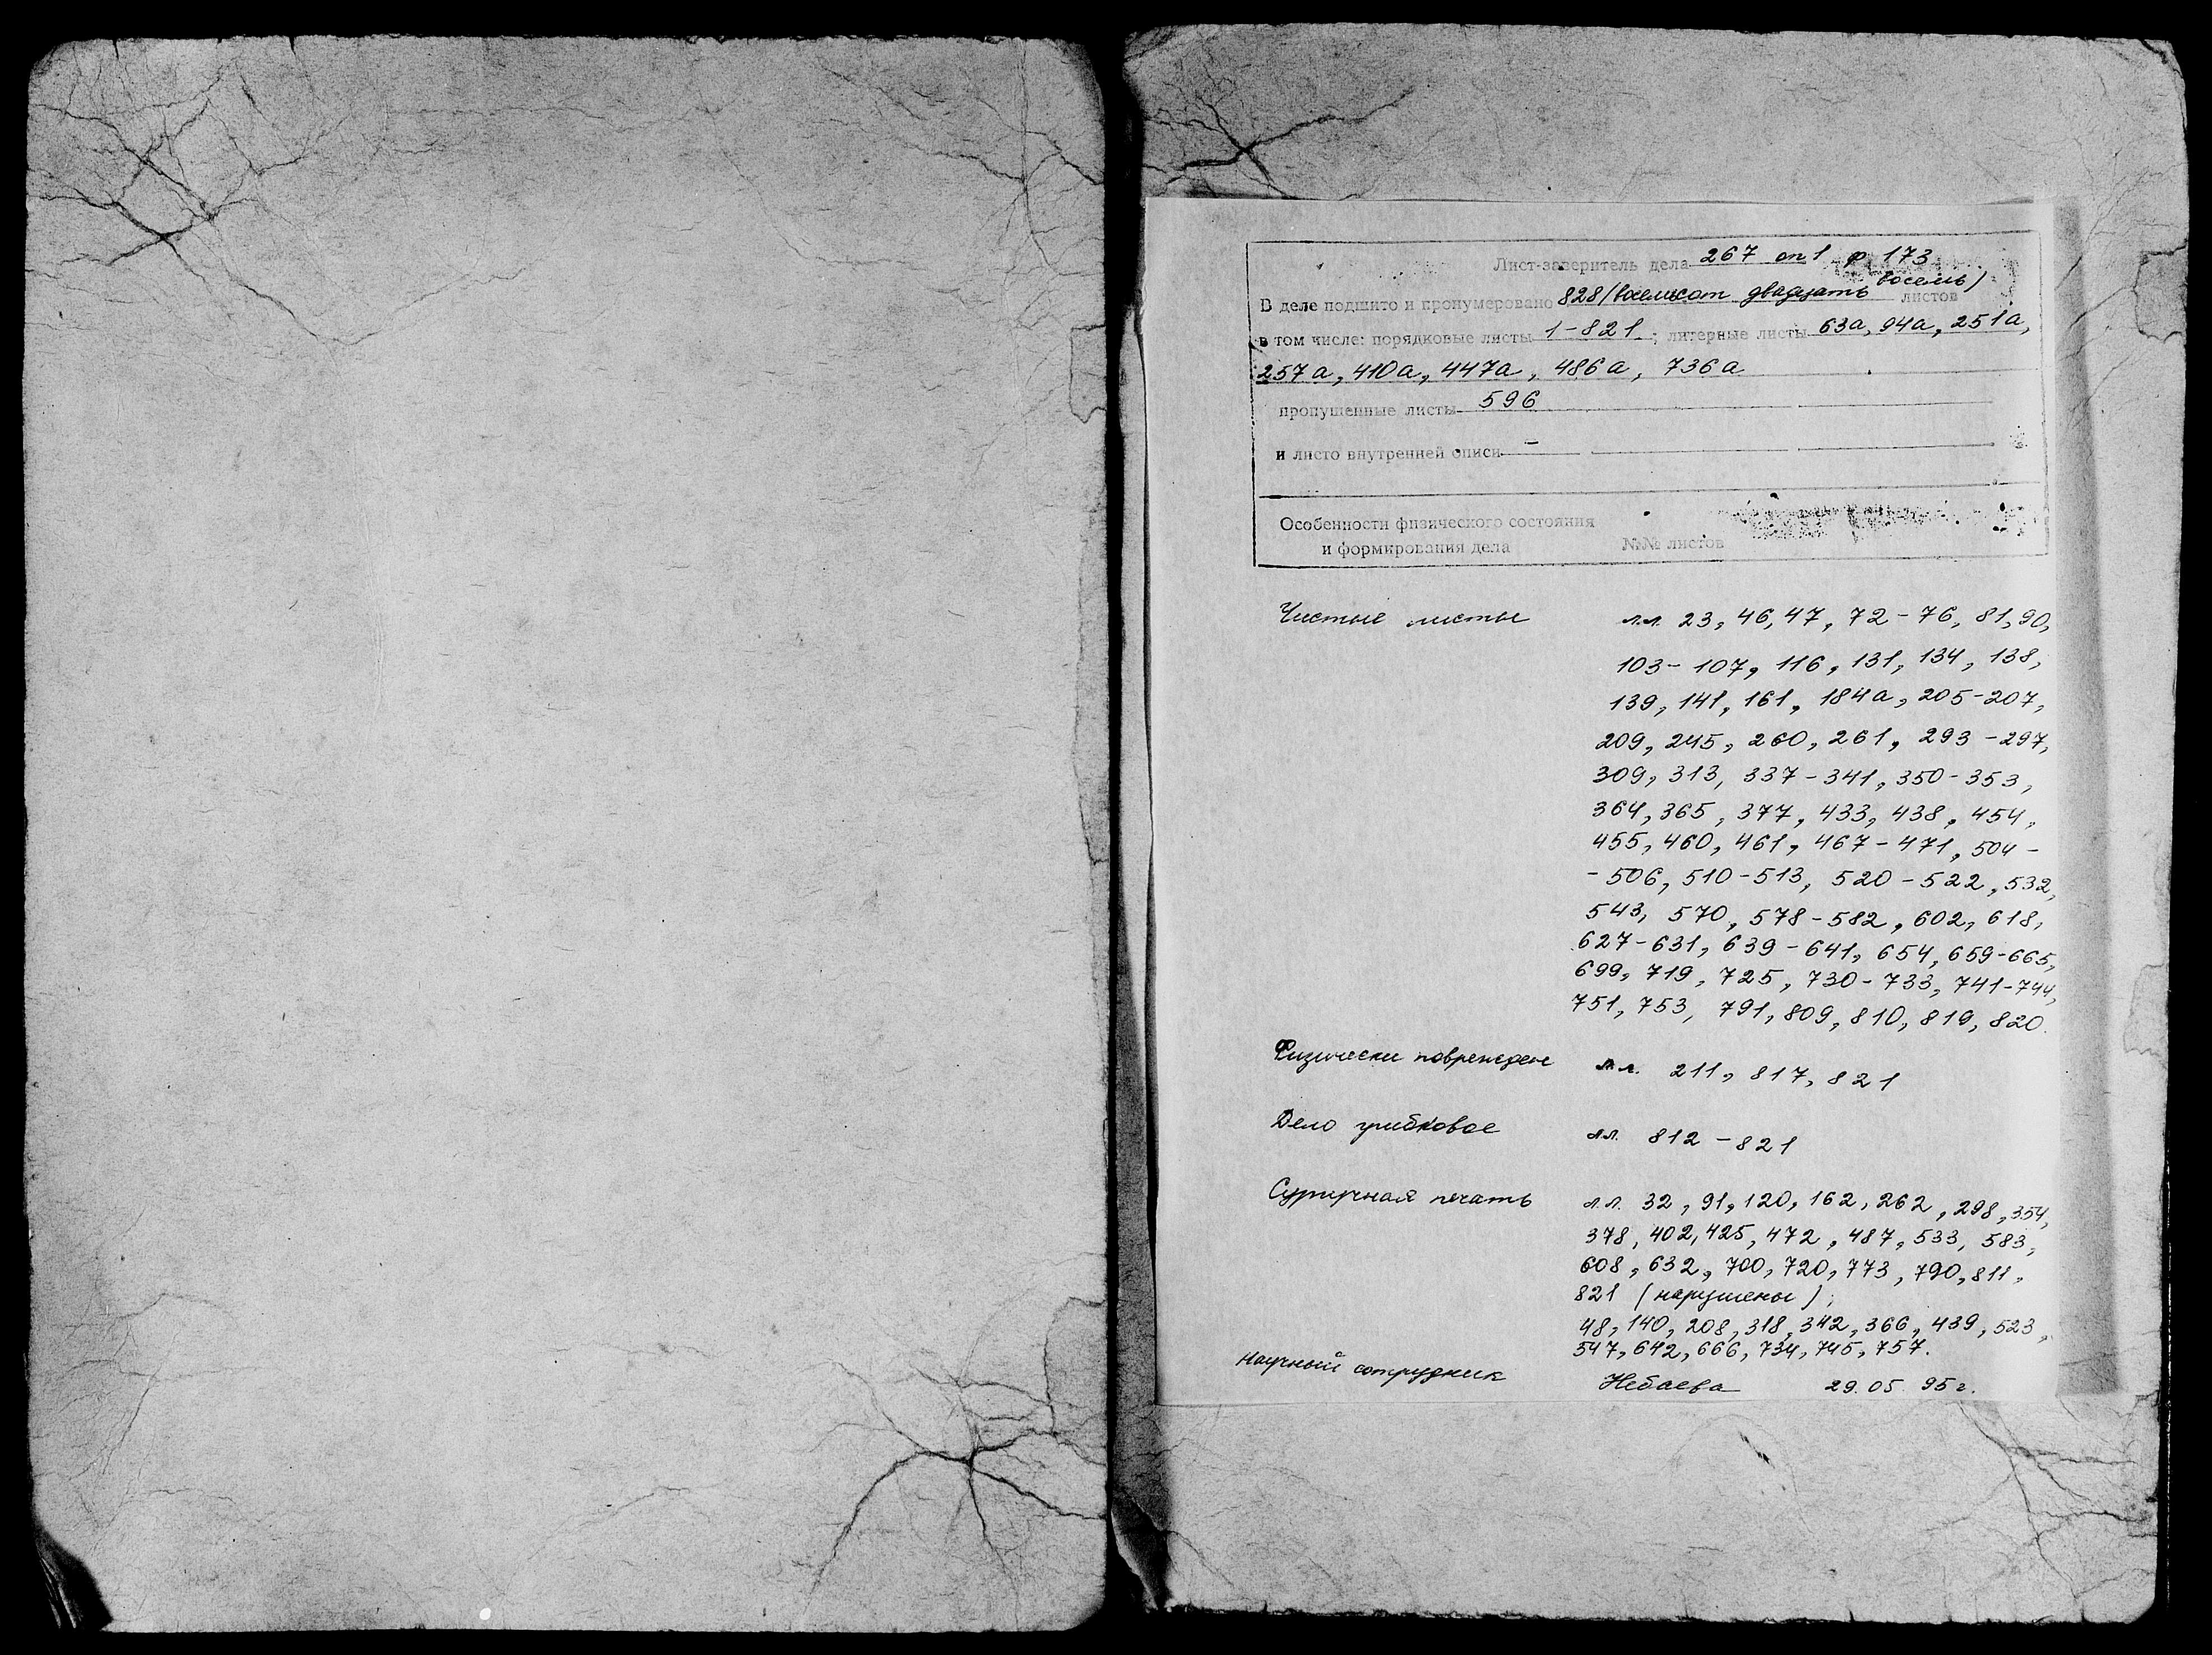 Лист-заверитель дела 267 оп1 ф 173
В деле подшито и пронумеровано 828 (восемьсот двадцать восемь) листов
в том числе: порядковые листы 1-821; литерные листы 63а, 94а, 251а,
257а, 410а, 447а, 486а, 736а
пропущенные листы 596
и листо внутренней описи –
Особенности физического состояния
и формирования дела №№ листов
Чистые листы лл. 23, 46, 47, 72-76, 81, 90,
103-107, 116, 131, 134, 138,
139, 141, 161, 184а, 205-207,
209, 245, 260, 261, 293-297,
309, 313, 337-341, 350-353,
364, 365, 377, 433, 438, 454,
455, 460, 461, 467-471, 504-
-506, 510-513, 520-522, 532,
543, 570, 578-582, 602, 618,
627-631, 639-641, 654, 659-665,
699, 719, 725, 730-733, 741-744,
751, 753, 791, 809, 810, 819, 820.
Физически поврежден л.л. 211, 817, 821
Дело грибковое лл. 812-821
Сургучная печать л.л. 32, 91, 120, 162, 262, 298, 354,
378, 402, 425, 472, 487, 533, 583,
608, 632, 700, 720, 773, 790, 811,
821 (нарушены);
48, 140, 208, 318, 342, 366, 439, 523,
547, 642, 666, 734, 745, 757.
Научный сотрудник Небаева 29.05.95г.